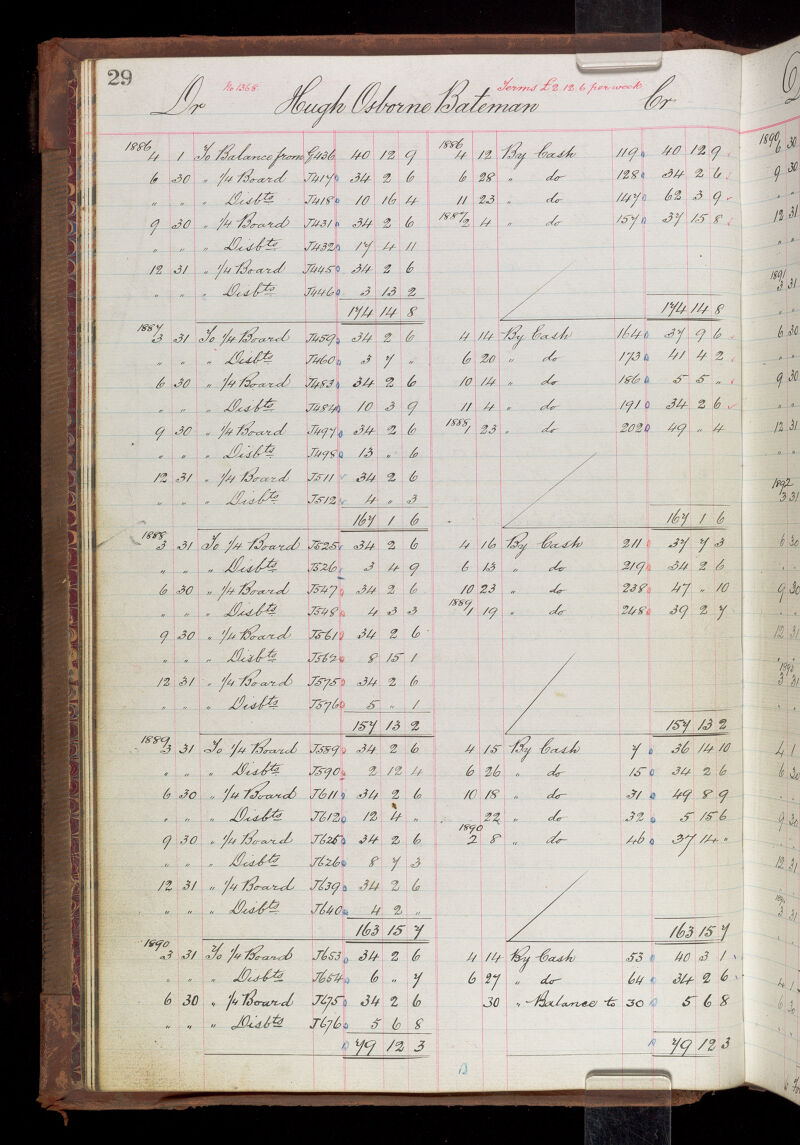 29
Dr No 1368 Hugh Osborne Bateman Terms £2.12.6 per week Cr
1886 1886
4 1 To Balance from G436 40 12 9 4 12 By Cash 119 40 12 9
6 30 " 1/4 Board J417 34 2 6 6 28 " do 128 34 2 6
" " " Disbts J418 10 16 4 11 23 " do 147 62 3 9
9 30 " 1/4 Board J431 34 2 6 1887 2 4 " do 157 37 15 8
" " " Disbts J432 17 4 11
12 31 " 1/4 Board J445 34 2 6
" " " Disbts J446 3 13 2
174 14 8 174 14 8
1887
3 31 To 1/4 Board J459 34 2 6 4 14 By Cash 164 37 9 6
" " " Disbts J460 3 7 " 6 20 " do 173 41 4 2
6 30 " 1/4 Board J483 34 2 6 10 14 " do 186 5 5 "
" " " Disbts J484 10 3 9 11 4 " do 191 34 2 6
9 30 " 1/4 Board J497 34 2 6 1888 1 23 " do 202 49 " 4
" " " Disbts J498 13 " 6
12 31 " 1/4 Board J511 34 2 6
" " " Disbts J512 4 " 3
167 1 6 167 1 6
1888
3 31 To 1/4 Board J525 34 2 6 4 16 By Cash 211 37 7 3
" " " Disbts J526 3 4 9 6 13 " do 219 34 2 6
6 30 " 1/4 Board J547 34 2 6 10 23 " do 238 47 " 10
" " " Disbts J548 4 3 3 1889 1 19 " do 248 39 2 7
9 30 " 1/4 Board J561 34 2 6
" " " Disbts J562 8 15 1
12 31 " 1/4 Board J575 34 2 6
" " " Disbts J576 5 " 1
157 13 2 157 13 2
1889
3 31 To 1/4 Board J589 34 2 6 4 15 By Cash 7 36 14 10
" " " Disbts J590 2 12 4 6 26 " do 15 34 2 6
6 30 " 1/4 Board J611 34 2 6 10 18 " do 31 49 8 9
" " " Disbts J612 12 4 " 22 " do 32 5 15 6
9 30 " 1/4 Board J625 34 2 6 1890 2 8 " do 46 37 14 "
" " " Disbts J626 8 7 3
12 31 " 1/4 Board J639 34 2 6
" " " Disbts J640 4 2 "
163 15 7 163 15 7
1890
3 31 To 1/4 Board J653 34 2 6 4 14 By Cash 53 40 3 1
" " " Disbts J654 6 " 7 6 27 " do 64 34 2 6
6 30 " 1/4 Board J675 34 2 6 30 " Balance to 30 5 6 8
" " " Disbts J676 5 6 8
79 12 3 79 12 3
1890
6 30
9 30
" "
12 31
" "
1891
3 31
6 30
" "
9 30
" "
12 31
" "
1892
3 31
6 30
" "
9 30
" "
12 31
3 31
4 1
6 30
9 30
12 31
3 31
4 1
6 30